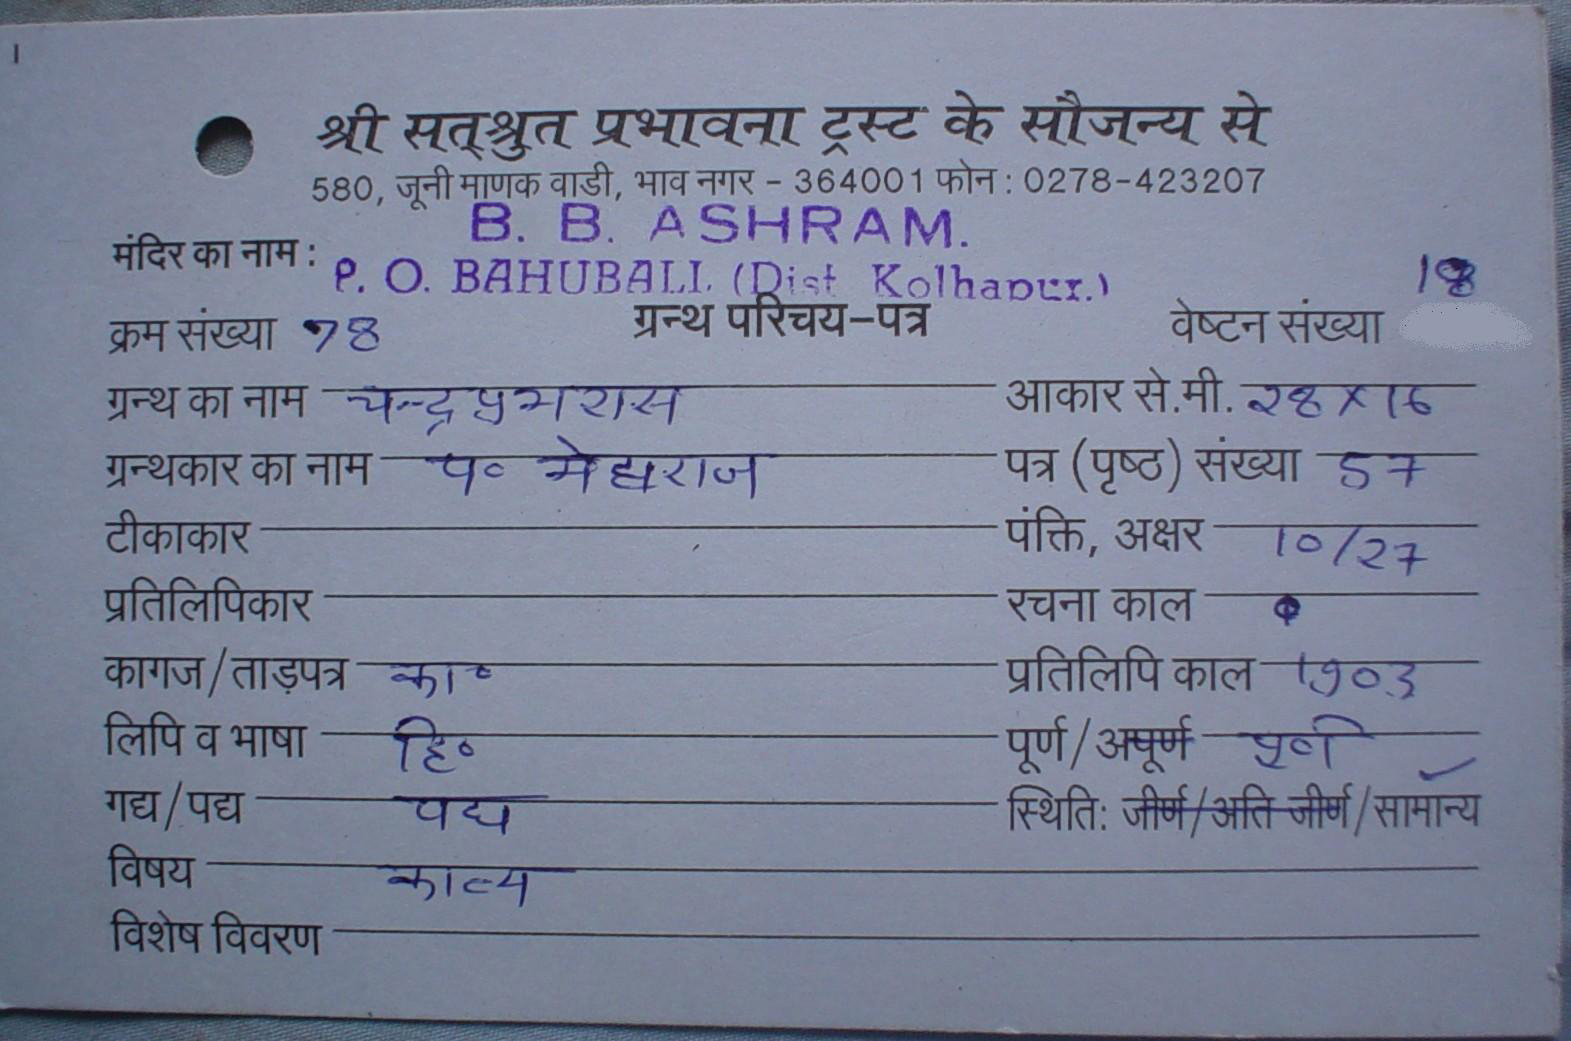 1
श्री सत्श्रुत प्रभावना ट्रस्ट के सौजन्य से
580, जूनी माणक वाडी, भाव नगर - 364001 फोन : 0278-423207
B. B. ASHRAM.
मंदिर का नाम : P. O. BAHUBALI. (Dist Kolhapur.)
क्रम संख्या 78 ग्रन्थ परिचय-पत्र वेष्टन संख्या 18
ग्रन्थ का नाम चन्द्रप्रभरास आकार से.मी. 28 X 16
ग्रन्थकार का नाम प० मेघराज पत्र (पृष्ठ) संख्या 57
टीकाकार पंक्ति, अक्षर 10/27
प्रतिलिपिकार रचना काल
कागज/ताड़पत्र का० प्रतिलिपि काल 1903
लिपि व भाषा हि० पूर्ण/अपूर्ण पूर्ण
गद्य/पद्य पद्य स्थिति: जीर्ण/अति जीर्ण/सामान्य
विषय काव्य
विशेष विवरण